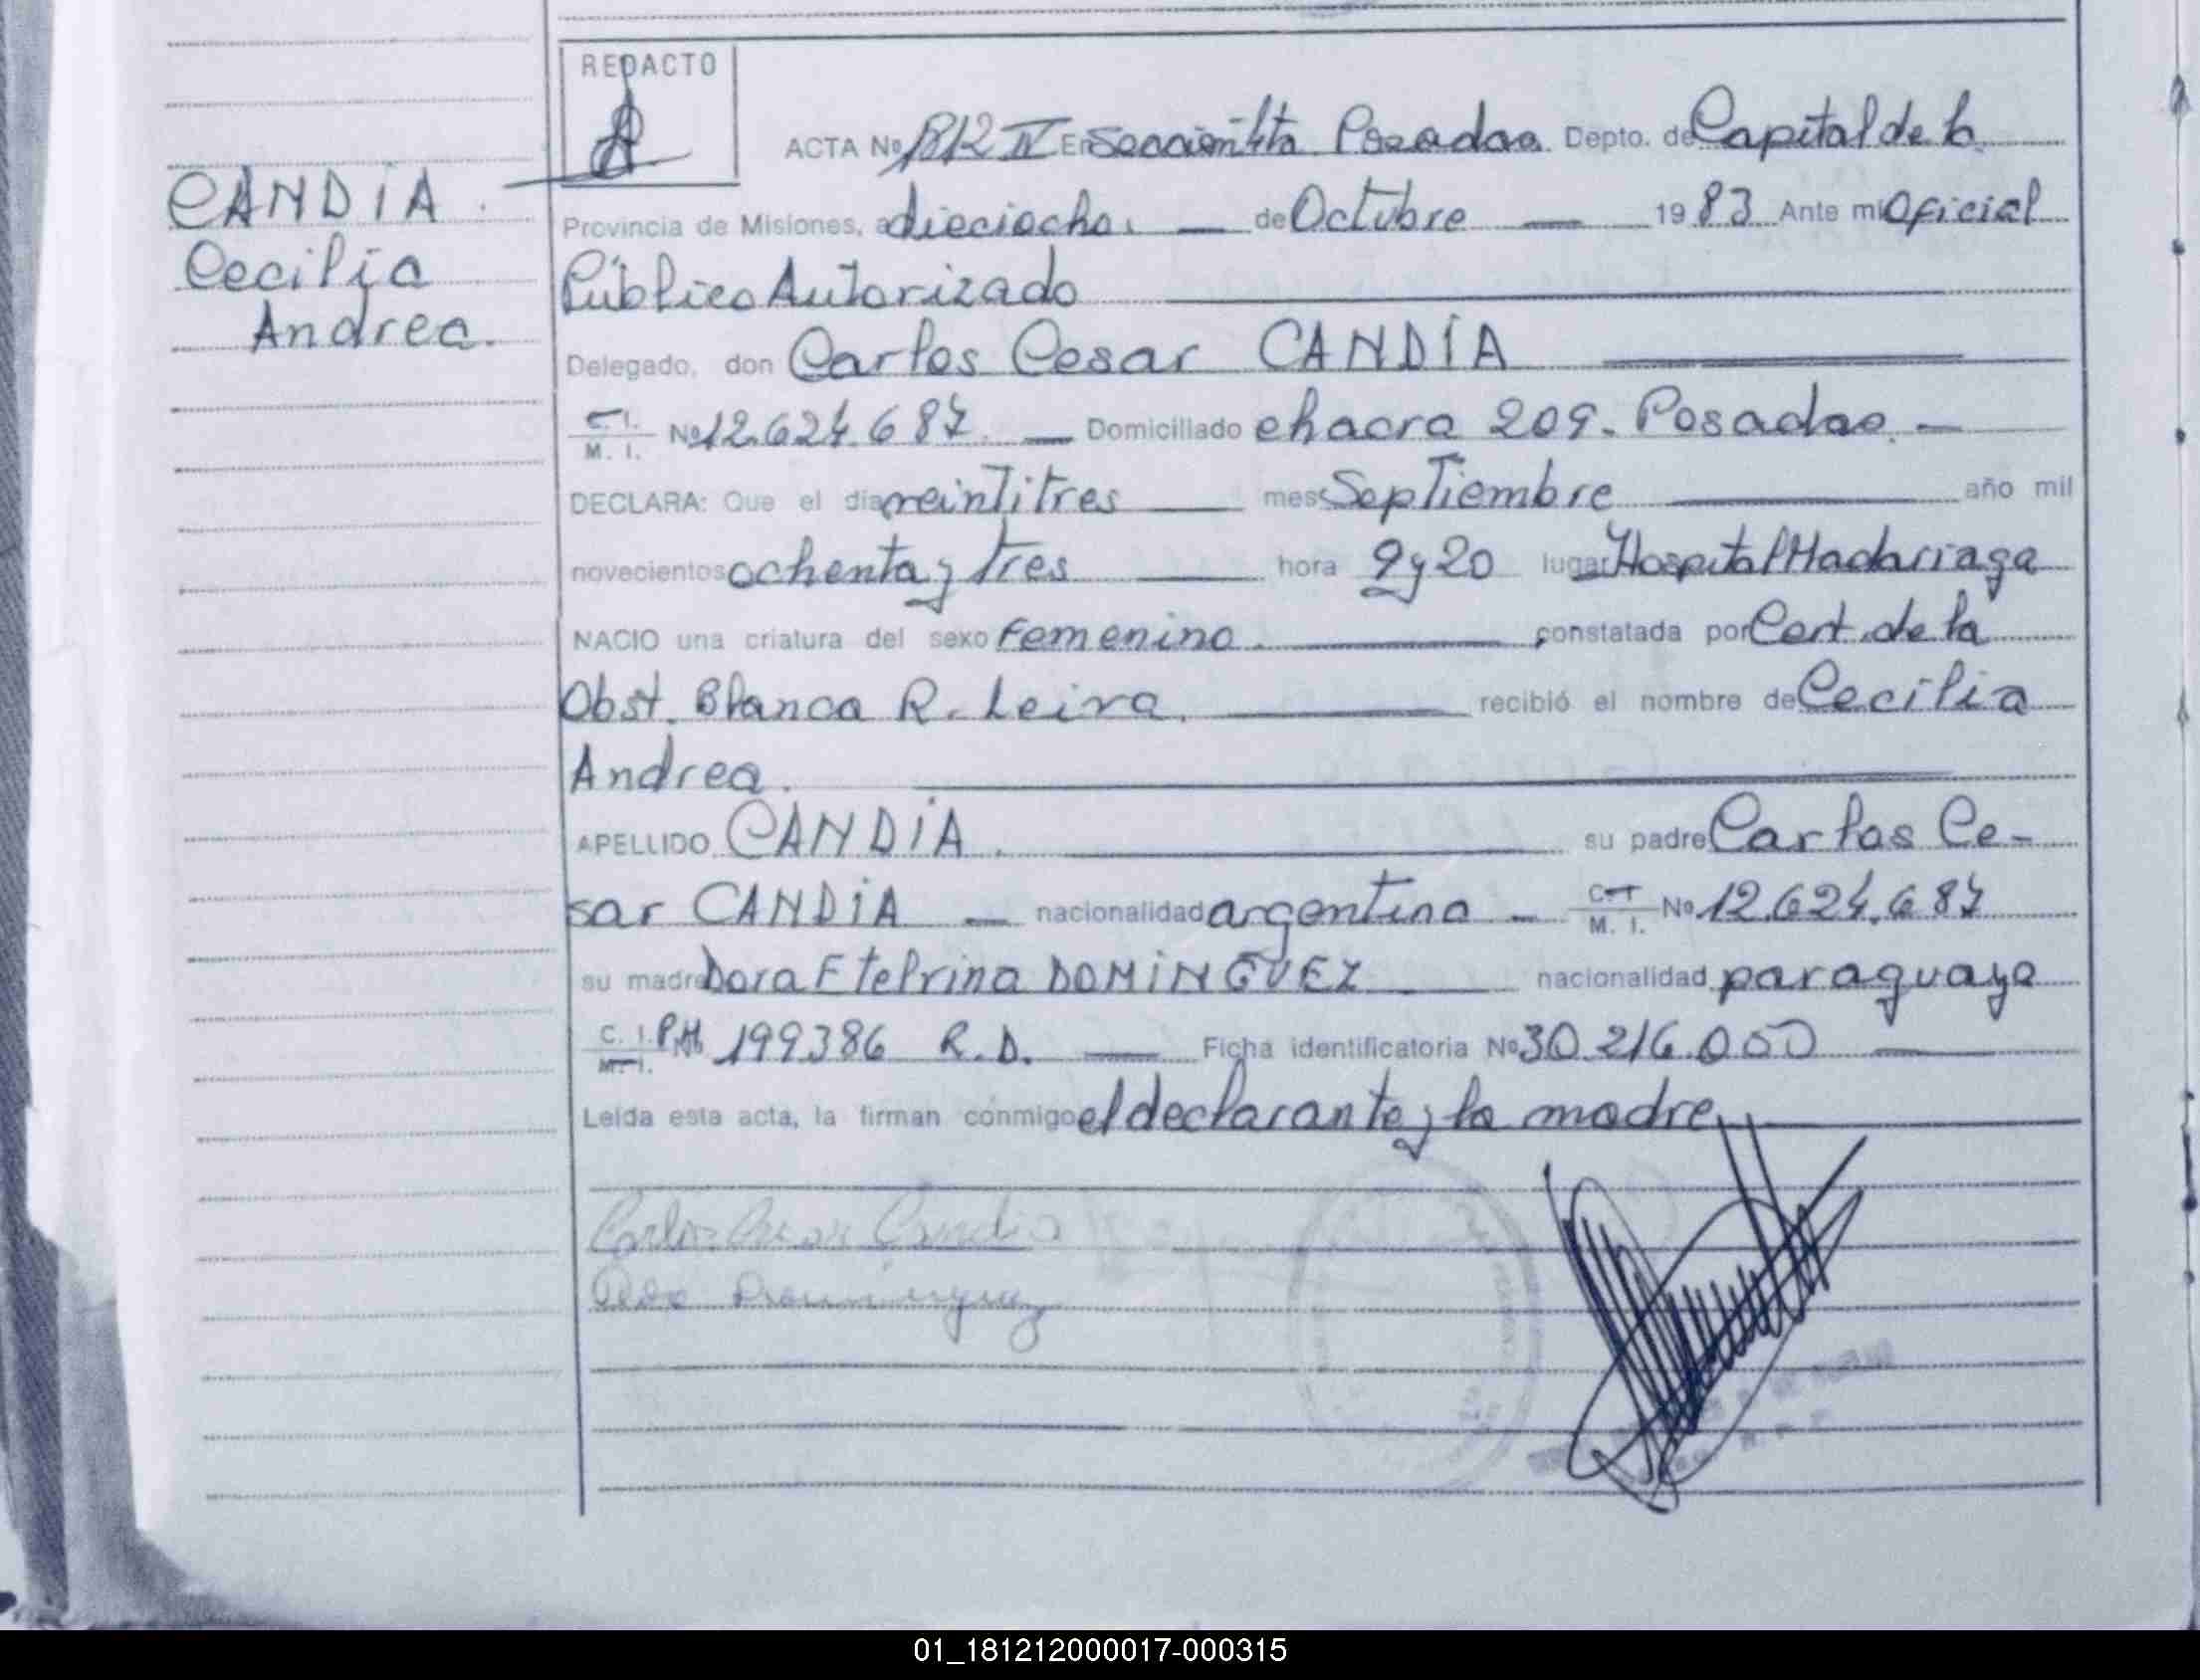 REDACTO
ACTA Nº 1812 IV En Sección 4ta Posadas Depto. de Capital de la
CANDIA
Provincia de Misiones, a dieciocho. de Octubre 1983 Ante mi Oficial
Cecilia
Público Autorizado
Andrea.
Delegado, don Carlos Cesar CANDIA
C. I. M. I. Nº 12.624.687 Domiciliado chacra 209. Posadas.
DECLARA: Que el día veintitres mes Septiembre año mil
novecientos ochenta y tres hora 9 y 20 lugar Hospital Madariaga
NACIO una criatura del sexo Femenino. constatada por Cert. de la
Obst. Blanca R. Leiva. recibió el nombre de Cecilia
Andrea.
APELLIDO CANDIA. su padre Carlos Ce-
sar CANDIA nacionalidad argentina C. I. M. I. Nº 12.624.687
su madre Dora Etelvina DOMINGUEZ nacionalidad paraguaya
C. I. M. I. Nº 199386 R.D. Ficha identificatoria Nº 30.216.050
Leida esta acta, la firman conmigo el declarante y la madre
Carlos Cesar Candia
Dominguez
01_181212000017-000315